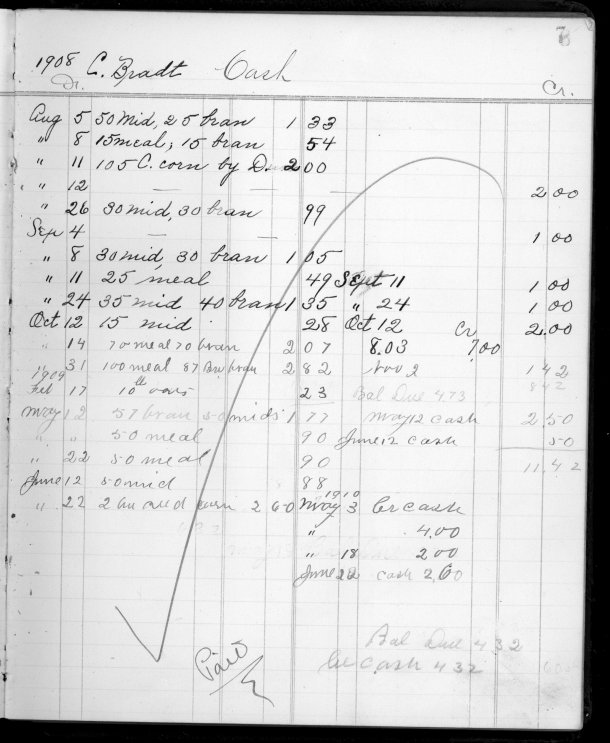 1908 C. Bradt Cash
Dr. Cr.
Aug 5 50 mid, 25 bran 1 33
" 8 15 meal, 15 bran 54
" 11 105 C. corn by D. 2 00
" 12 — — — 2 00
" 26 30 mid, 30 bran 99
Sep 4 — — 1 00
" 8 30 mid, 30 bran 1 05
" 11 25 meal 49 Sept 11 1 00
" 24 35 mid 40 bran 1 35 " 24 1 00
Oct 12 15 mid 28 Oct 12 Cr 2.00
" 14 70 meal 70 bran 2 07 8.03 7.00
" 31 100 meal 87 bran 2 82 Nov 2 1 42
1909 8 42
Feb 17 10 lb oats 23 Bal Due 4 73
May 12 57 bran 50 mids 1 77 May 12 cash 2 50
" " 50 meal 90 June 12 cash 50
" 22 50 meal 90 11 42
June 12 50 mid 88
1910
" 22 2 bu corn 2 60 May 3 Cr cash
" 4.00
" 18 2 00
June 22 cash 2,60
Bal Due 4 32
Cr Cash 4 32
Paid